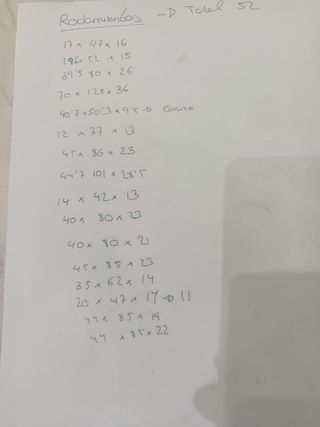 Rodamientos → Total 52
17 x 47 x 16
x 52 x 15
39'5 80 x 26
70 x 125 x 36
40'7 x 50'3 x 9'5 → Conico
12 x 37 x 13
45 x 86 x 23
44'7 101 x 28'5
14 x 42 x 13
40 x 80 x 23
40 x 80 x 21
45 x 85 x 23
35 x 62 x 14
20 x 47 x 17 → 11
x 85 x 19
44 x 85 x 22